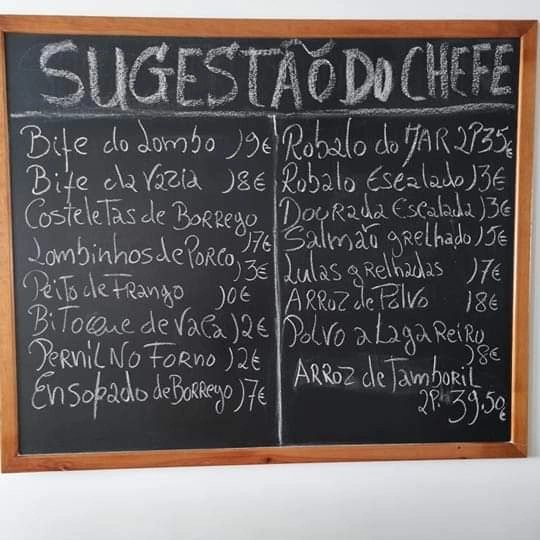 SUGESTÃO DO CHEFE
Bife do Lombo 19€
Bife da Vazia 18€
Costeletas de Borrego
17€
Lombinhos de Porco
13€
Peito de Frango 10€
Bitoque de Vaca 12€
Pernil No Forno 12€
Ensopado de Borrego 17€
Robalo do MAR 2P 35€
Robalo Escalado 13€
Dourada Escalada 13€
Salmão grelhado 15€
Lulas grelhadas 17€
ARROZ de Polvo 18€
Polvo a Lagareiro
18€
ARROZ de Tamboril
2P. 39.50€